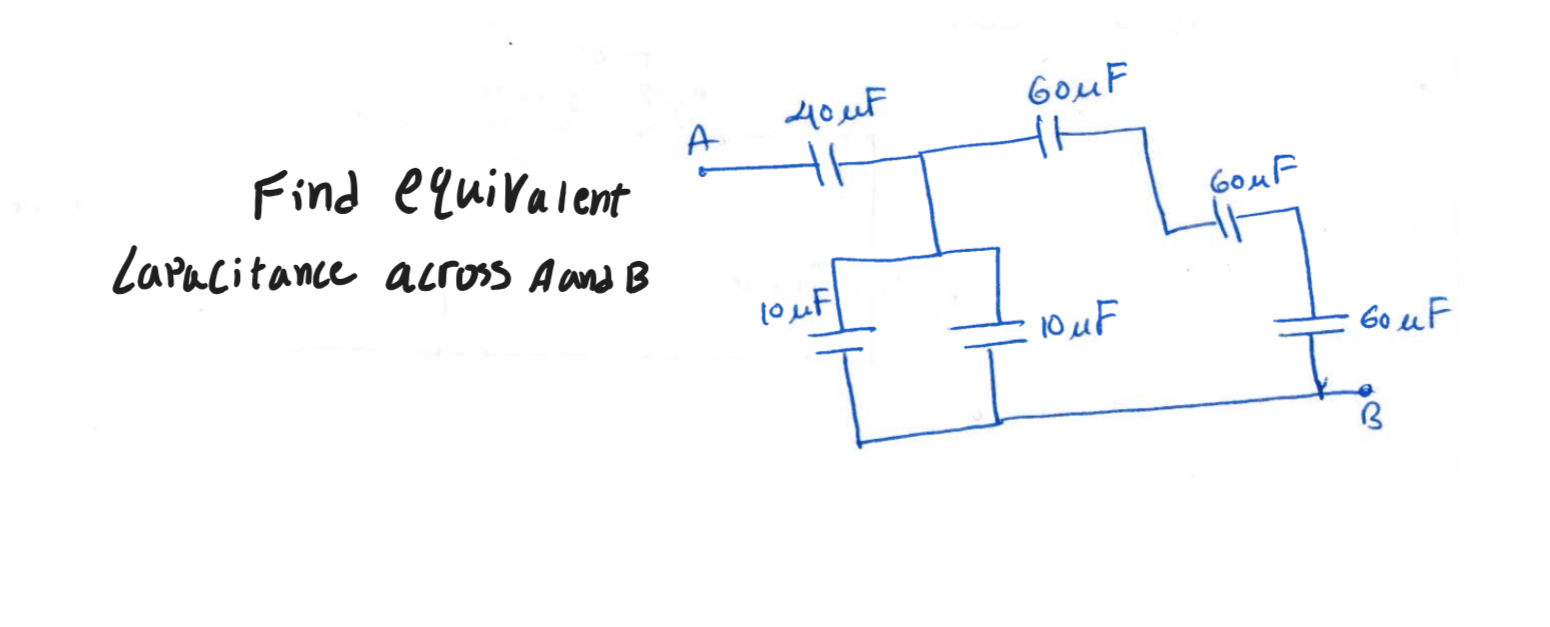 Find equivalent
Capacitance across A and B
A
40uF
60uF
60uF
10uF
10uF
60uF
B